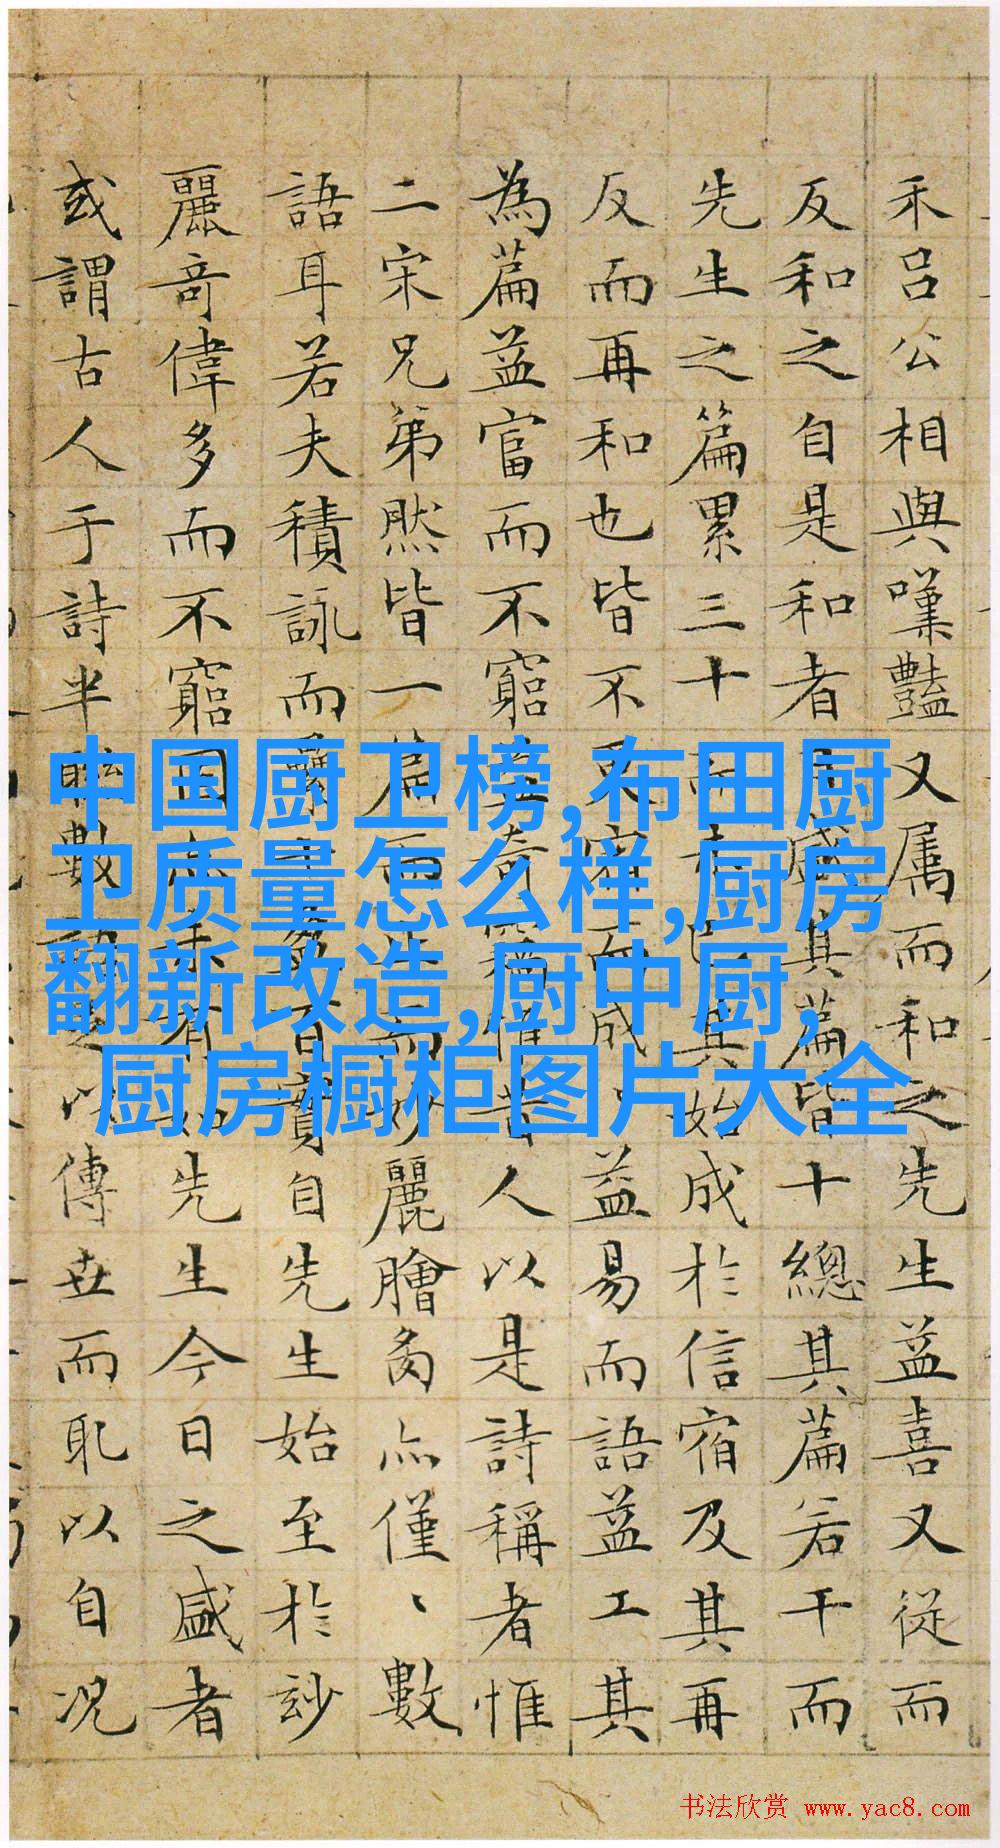 禾吕公相與嘆豔又属而和之先生益喜又従而
反和之自是和者盛其篇皆十總其篇若干而
先生之篇累三十其始成於信宿及其再
反而再和也皆不又宿而成益易而語益工其
為篇益富而不窮惟昔人以是詩稱者惟
二宋兄弟然皆一篇而麗膾㐫亦僅、數
語耳若夫積詠而百寶自先生始至於玅
麗奇偉多而不窮国有如先生今日之盛者
或謂古人于詩半聮數以傳世而耴以自况
中国厨卫榜,布田厨
卫质量怎么样,厨房
翻新改造,厨中厨,
厨房橱柜图片大全
书法欣赏 www.yac8.com